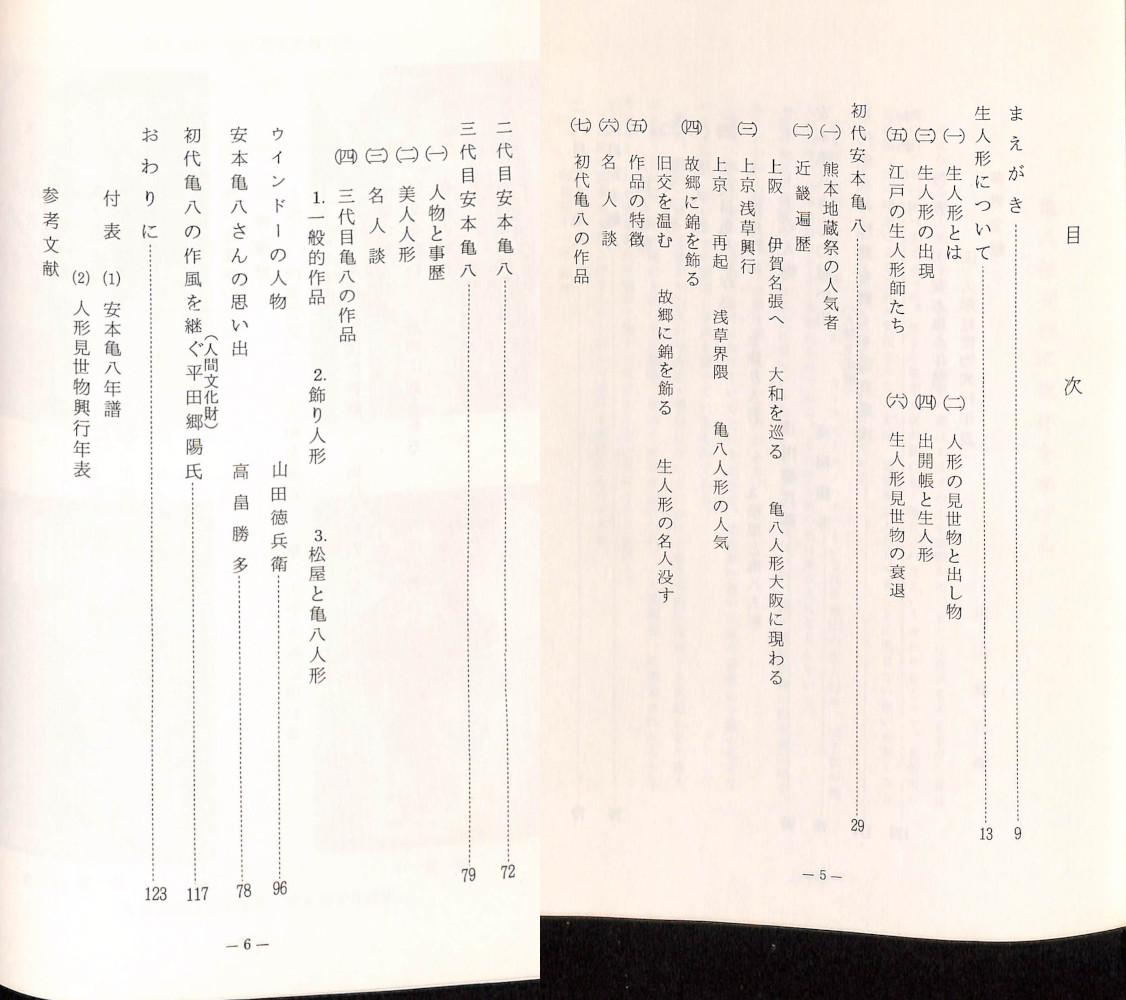 目次
まえがき 9
生人形について 13
㈠ 生人形とは ㈡ 人形の見世物と出し物
㈢ 生人形の出現 ㈣ 出開帳と生人形
㈤ 江戸の生人形師たち ㈥ 生人形見世物の衰退
初代安本亀八 29
㈠ 熊本地蔵祭の人気者
㈡ 近畿遍歴
上阪 伊賀名張へ 大和を巡る 亀八人形大阪に現わる
㈢ 上京浅草興行
上京 再起 浅草界隈 亀八人形の人気
㈣ 故郷に錦を飾る
旧交を温む 故郷に錦を飾る 生人形の名人没す
㈤ 作品の特徴
㈥ 名人談
㈦ 初代亀八の作品
— 5 —
二代目安本亀八 72
三代目安本亀八 79
㈠ 人物と事歴
㈡ 美人人形
㈢ 名人談
㈣ 三代目亀八の作品
1.一般的作品 2.飾り人形 3.松屋と亀八人形
ウインドーの人物 山田徳兵衛 96
安本亀八さんの思い出 高畠勝多 78
初代亀八の作風を継ぐ(人間文化財)平田郷陽氏 117
おわりに 123
付表 (1) 安本亀八年譜
(2) 人形見世物興行年表
参考文献
— 6 —